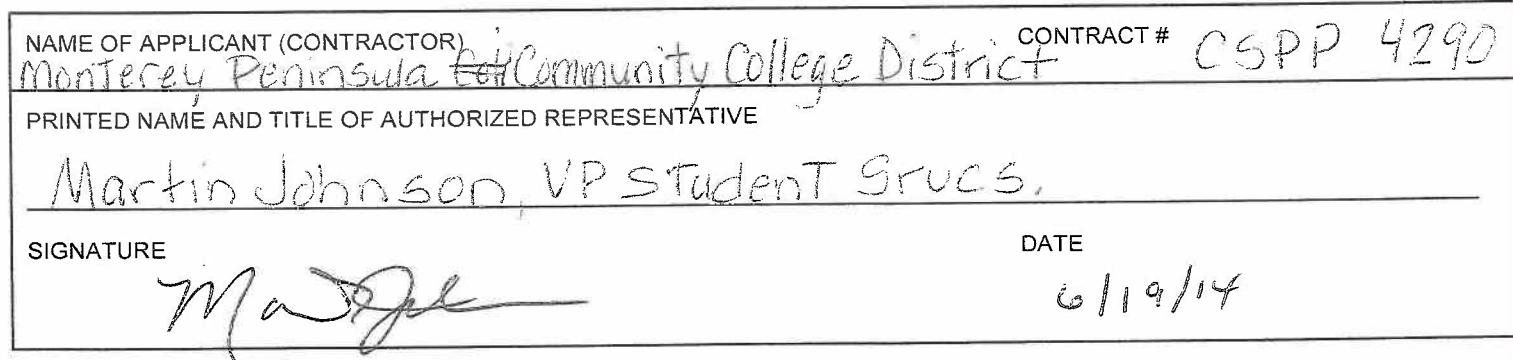 NAME OF APPLICANT (CONTRACTOR) CONTRACT # CSPP 4290
Monterey Peninsula Community College District
PRINTED NAME AND TITLE OF AUTHORIZED REPRESENTATIVE
Martin Johnson, VP Student Srvcs.
SIGNATURE DATE
6/19/14